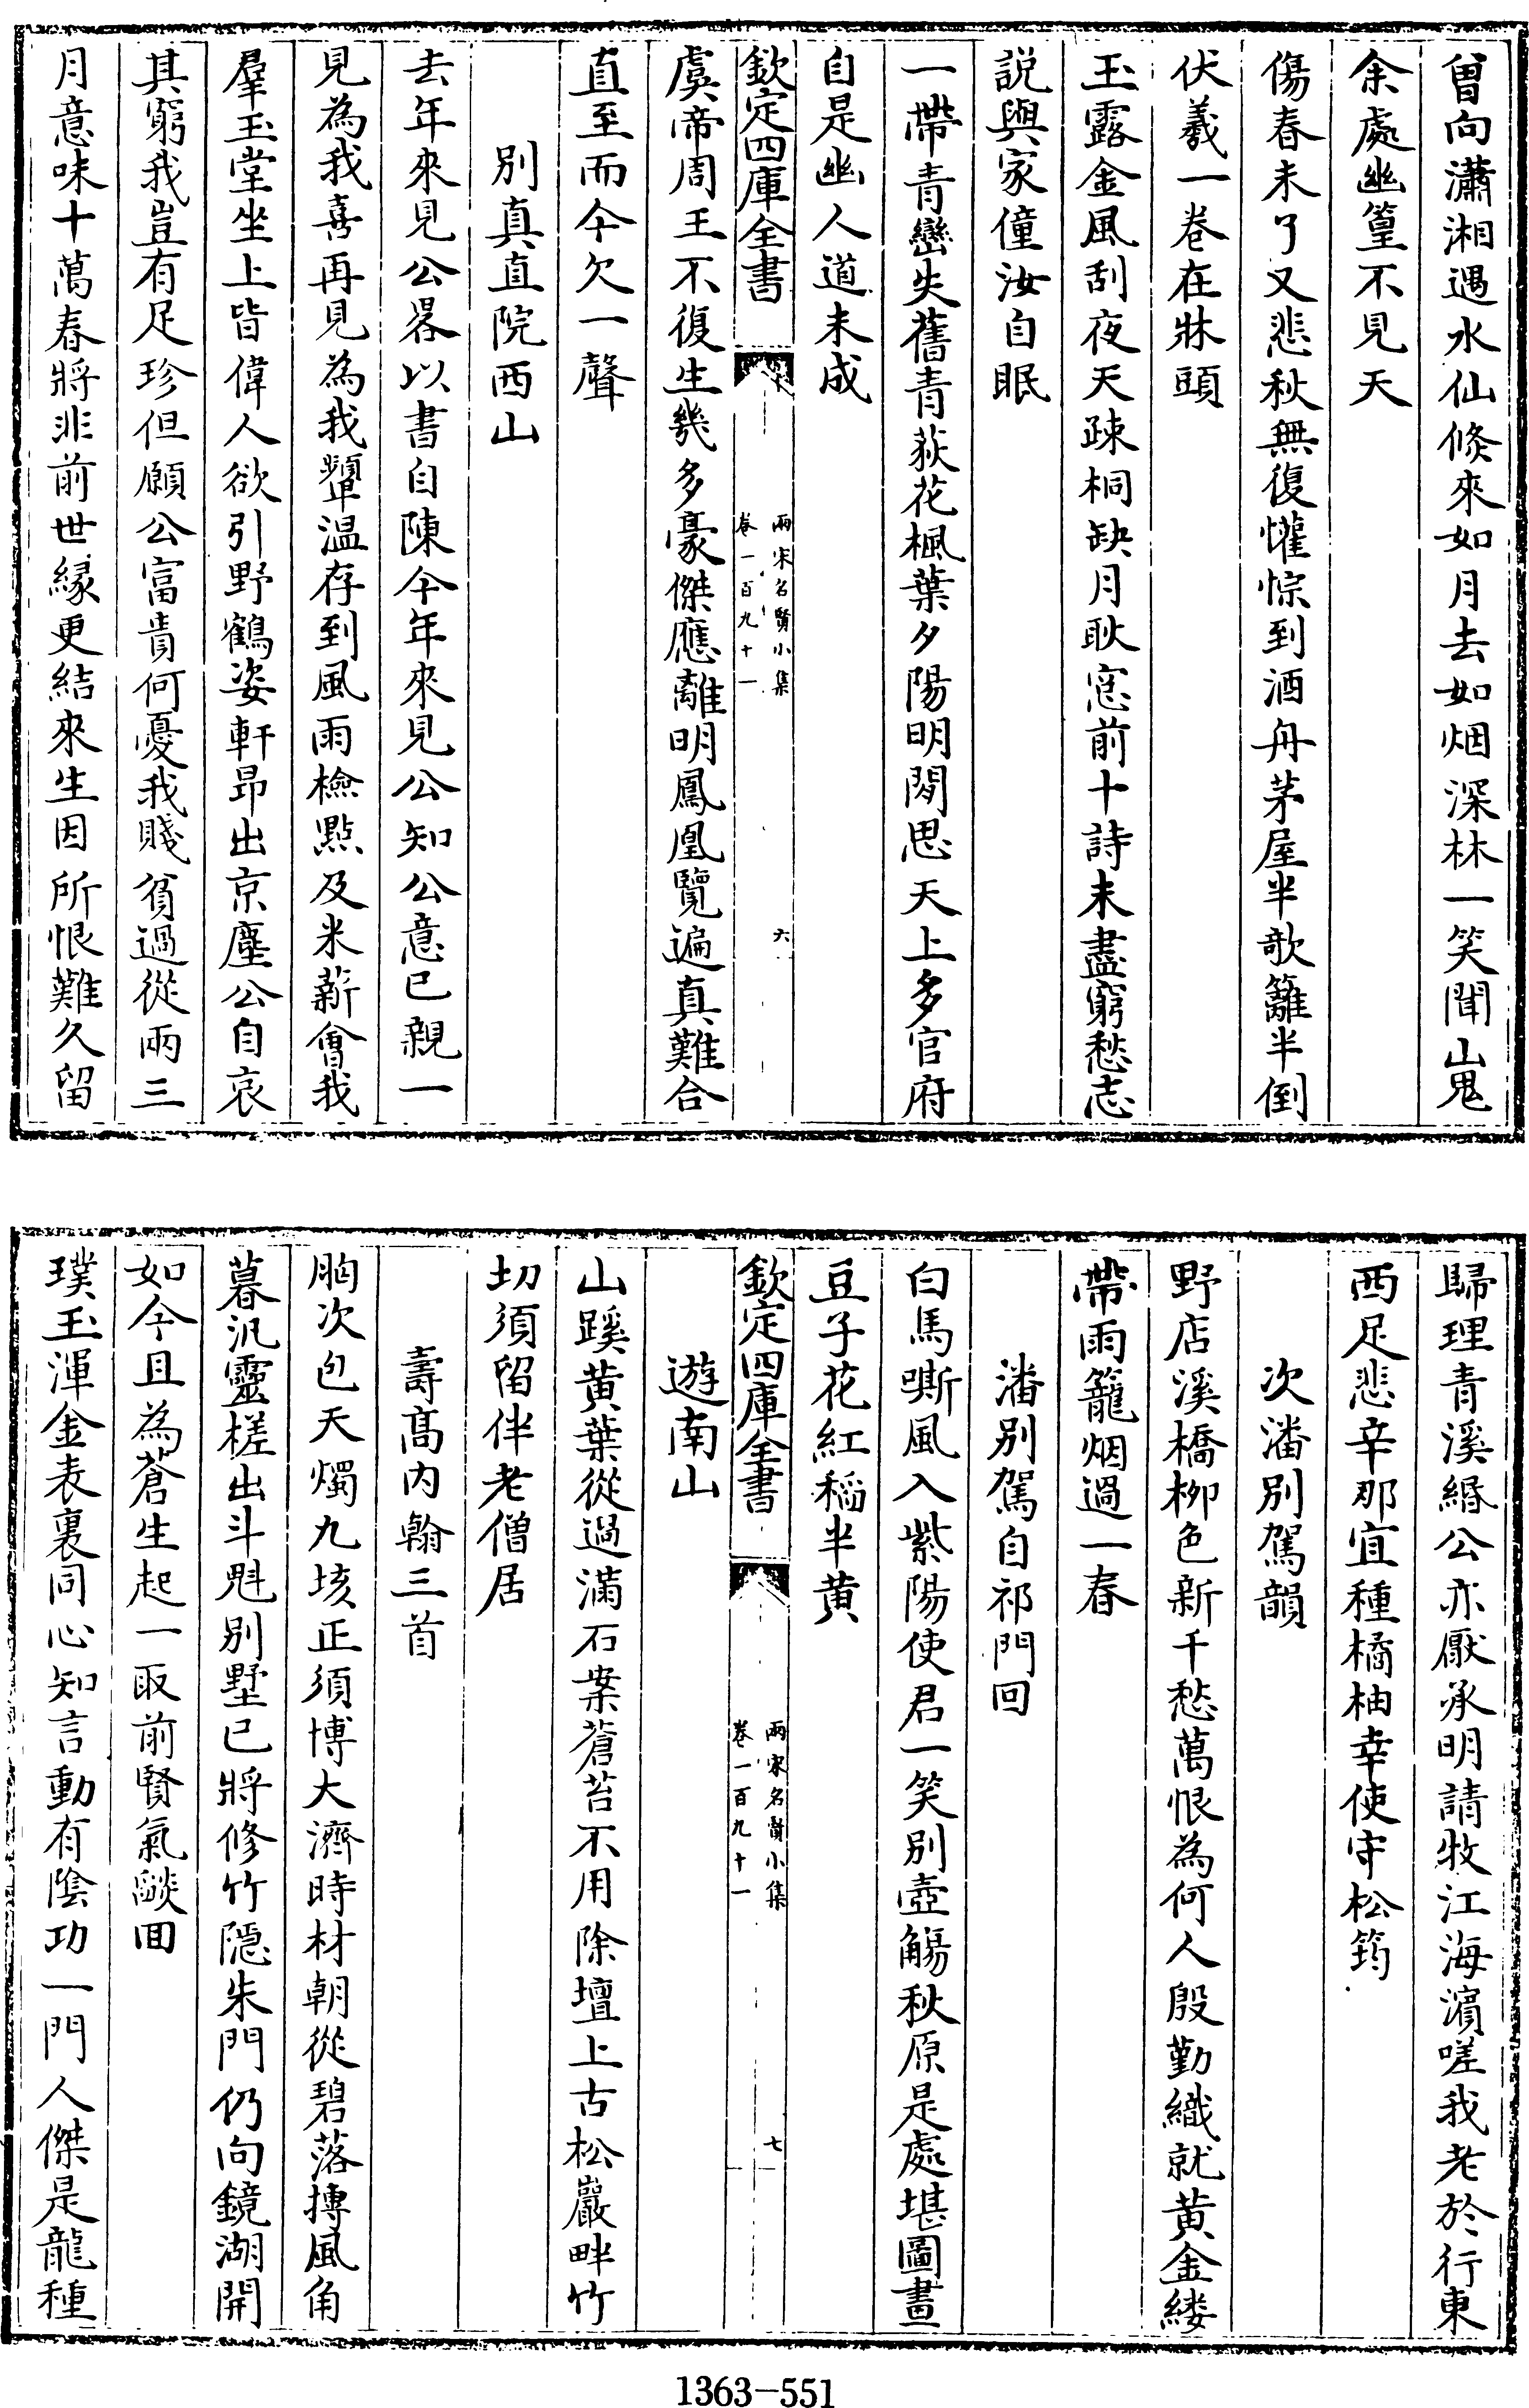 曾向瀟湘遇水仙倏來如月去如烟深林一笑聞山鬼
余處幽篁不見天
傷春未了又悲秋無復懽悰到酒舟茅屋半欹籬半倒
伏羲一卷在牀頭
玉露金風刮夜天疎桐缺月耿窓前十詩未盡窮愁志
説與家僮汝自眠
一帶青巒失舊青荻花楓葉夕陽明閒思天上多官府
自是幽人道未成
欽定四庫全書
兩宋名賢小集
卷一百九十一
六
虞帝周王不復生幾多豪傑應離明鳳凰覽遍真難合
直至而今欠一聲
別真直院西山
去年來見公畧以書自陳今年來見公知公意已親一
見為我喜再見為我顰温存到風雨檢點及米薪會我
羣玉堂坐上皆偉人欲引野鶴姿軒昂出京塵公自哀
其窮我豈有足珍但願公富貴何憂我賤貧過從兩三
月意味十萬春將非前世縁更結來生因所恨難久留
歸理青溪緡公亦厭承明請牧江海濱嗟我老於行東
西足悲辛那宜種橘柚幸使守松筠
次潘別駕韻
野店溪橋栁色新千愁萬恨為何人殷勤織就黄金縷
帶雨籠烟過一春
潘別駕自祁門回
白馬嘶風入紫陽使君一笑別壺觴秋原是處堪圖畫
豆子花紅稻半黄
欽定四庫全書
兩宋名賢小集
卷一百九十一
七
遊南山
山蹊黄葉從過滿石案蒼苔不用除壇上古松巖畔竹
切須留伴老僧居
壽髙内翰三首
胸次包天燭九垓正須博大濟時材朝從碧落摶風角
暮汎靈槎出斗魁別墅已將修竹隠朱門仍向鏡湖開
如今且為蒼生起一取前賢氣燄回
璞玉渾金表裏同心知言動有隂功一門人傑是龍種
1363-551